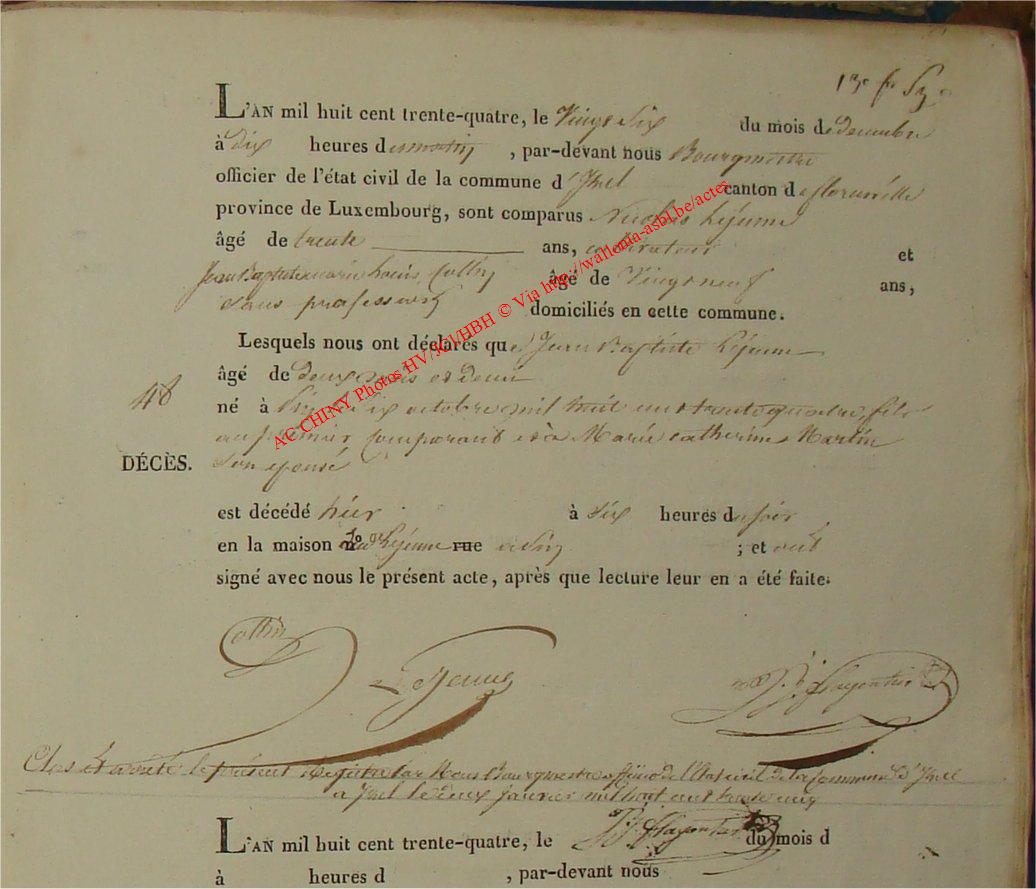 L'AN mil huit cent trente-quatre, le Vingt Six du mois de decembre
à dix heures du matin, par-devant nous Bourgmestre
officier de l'état civil de la commune d'Izel canton de florenville
province de Luxembourg, sont comparus Nicolas Lejeune
âgé de trente ans, cultivateur et
Jean Baptiste marie Louis Collin âgé de Vingt neuf ans,
Sans profession domiciliés en cette commune.
Lesquels nous ont déclarés que Jean Baptiste Lejeune
âgé de deux mois et demi
48
né à Six octobre mil huit cent trente quatre, fils
au premier Comparant et à Marie catherine Martin
DÉCÈS. Son épouse
est décédé hier à Six heures du soir
en la maison Lejeune rue ; et ont
signé avec nous le présent acte, après que lecture leur en a été faite.
Collin
Lejeune
Clos et arrêté le présent Registre par Nous Bourgmestre officier de l'Etat civil de la Commune d'Izel
a Izel le deux Janvier mil huit cent trente cinq
L'AN mil huit cent trente-quatre, le du mois d
à heures d , par-devant nous
AC CHINY Photos HV/JCl/HBH © Via http://wallonia-asbl.be/actes